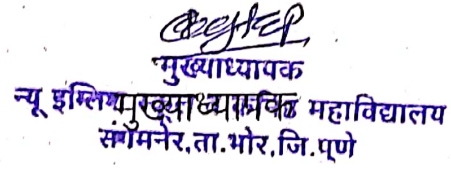 मुख्याध्यापक
न्यू इंग्लिश मुख्याध्यापक महाविद्यालय
संगमनेर,ता.भोर,जि.पुणे